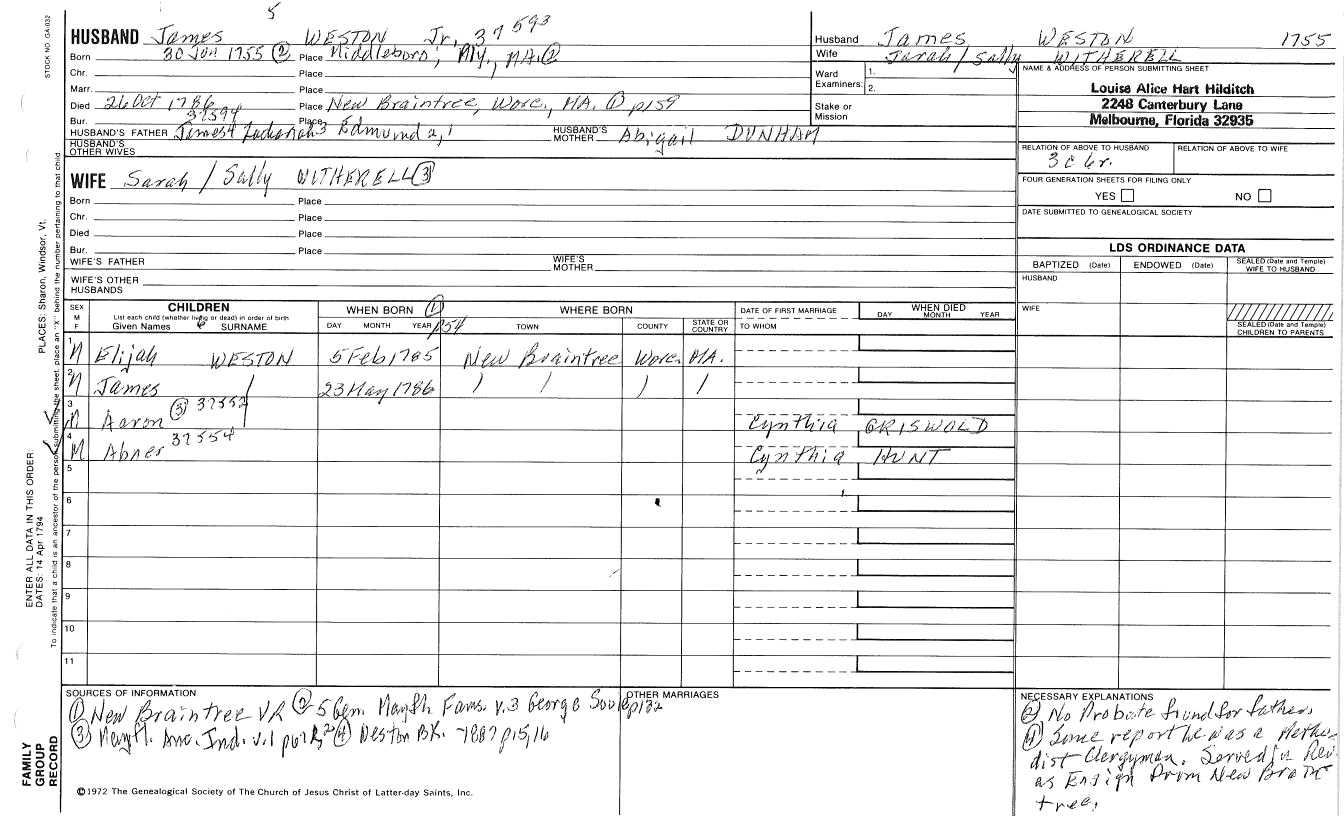 5
HUSBAND James WESTON Jr, 37593
Born 30 Jun 1755 ② Place Middleboro, Ply, MA ②
Chr. Place
Marr. Place
Died 26 Oct 1786 Place New Braintree, Worc, MA. ① p159
Bur. 37594 Place
HUSBAND'S FATHER James4 Zachariah3 Edmund 2,1 HUSBAND'S MOTHER Abigail DUNHAM
HUSBAND'S OTHER WIVES
WIFE Sarah / Sally WITHERELL ③
Born Place
Chr. Place
Died Place
Bur. Place
WIFE'S FATHER WIFE'S MOTHER
WIFE'S OTHER HUSBANDS
Husband James WESTON 1755
Wife Sarah / Sally WITHERELL
Ward Examiners: 1. 2.
Stake or Mission
NAME & ADDRESS OF PERSON SUBMITTING SHEET
Louise Alice Hart Hilditch
2248 Canterbury Lane
Melbourne, Florida 32935
RELATION OF ABOVE TO HUSBAND RELATION OF ABOVE TO WIFE
3c 6r.
FOUR GENERATION SHEETS FOR FILING ONLY
YES NO
DATE SUBMITTED TO GENEALOGICAL SOCIETY
LDS ORDINANCE DATA
BAPTIZED (Date) ENDOWED (Date) SEALED (Date and Temple) WIFE TO HUSBAND
HUSBAND
WIFE
SEALED (Date and Temple) CHILDREN TO PARENTS
SEX M F CHILDREN WHEN BORN ① WHERE BORN DATE OF FIRST MARRIAGE WHEN DIED
List each child (whether living or dead) in order of birth
Given Names SURNAME DAY MONTH YEAR p54 TOWN COUNTY STATE OR COUNTRY TO WHOM DAY MONTH YEAR
1 M Elijah WESTON 5 Feb 1785 New Braintree Worc. MA.
2 M James / 23 May 1786 / / / /
3 M Aaron ③ 37552 Cynthia GRISWOLD
4 M Abner 37554 Cynthia HUNT
5
6
7
8
9
10
11
SOURCES OF INFORMATION
① New Braintree VR ② 5 Gen. Mayfl. Fams. v.3 George Soule p132
③ Mayfl. Anc. Ind. v.1 ④ Weston BK. 1887 p15,16
OTHER MARRIAGES
NECESSARY EXPLANATIONS
② No Probate found for father.
④ Some report he was a Metho-
dist Clergyman. Served in Rev.
as Ensign from New Brain
tree.
©1972 The Genealogical Society of The Church of Jesus Christ of Latter-day Saints, Inc.
STOCK NO. GA-032
PLACES: Sharon, Windsor, Vt.
ENTER ALL DATA IN THIS ORDER:
DATES: 14 Apr 1794
To indicate that a child is an ancestor of the person submitting the sheet, place an "X" behind the number pertaining to that child
FAMILY GROUP RECORD